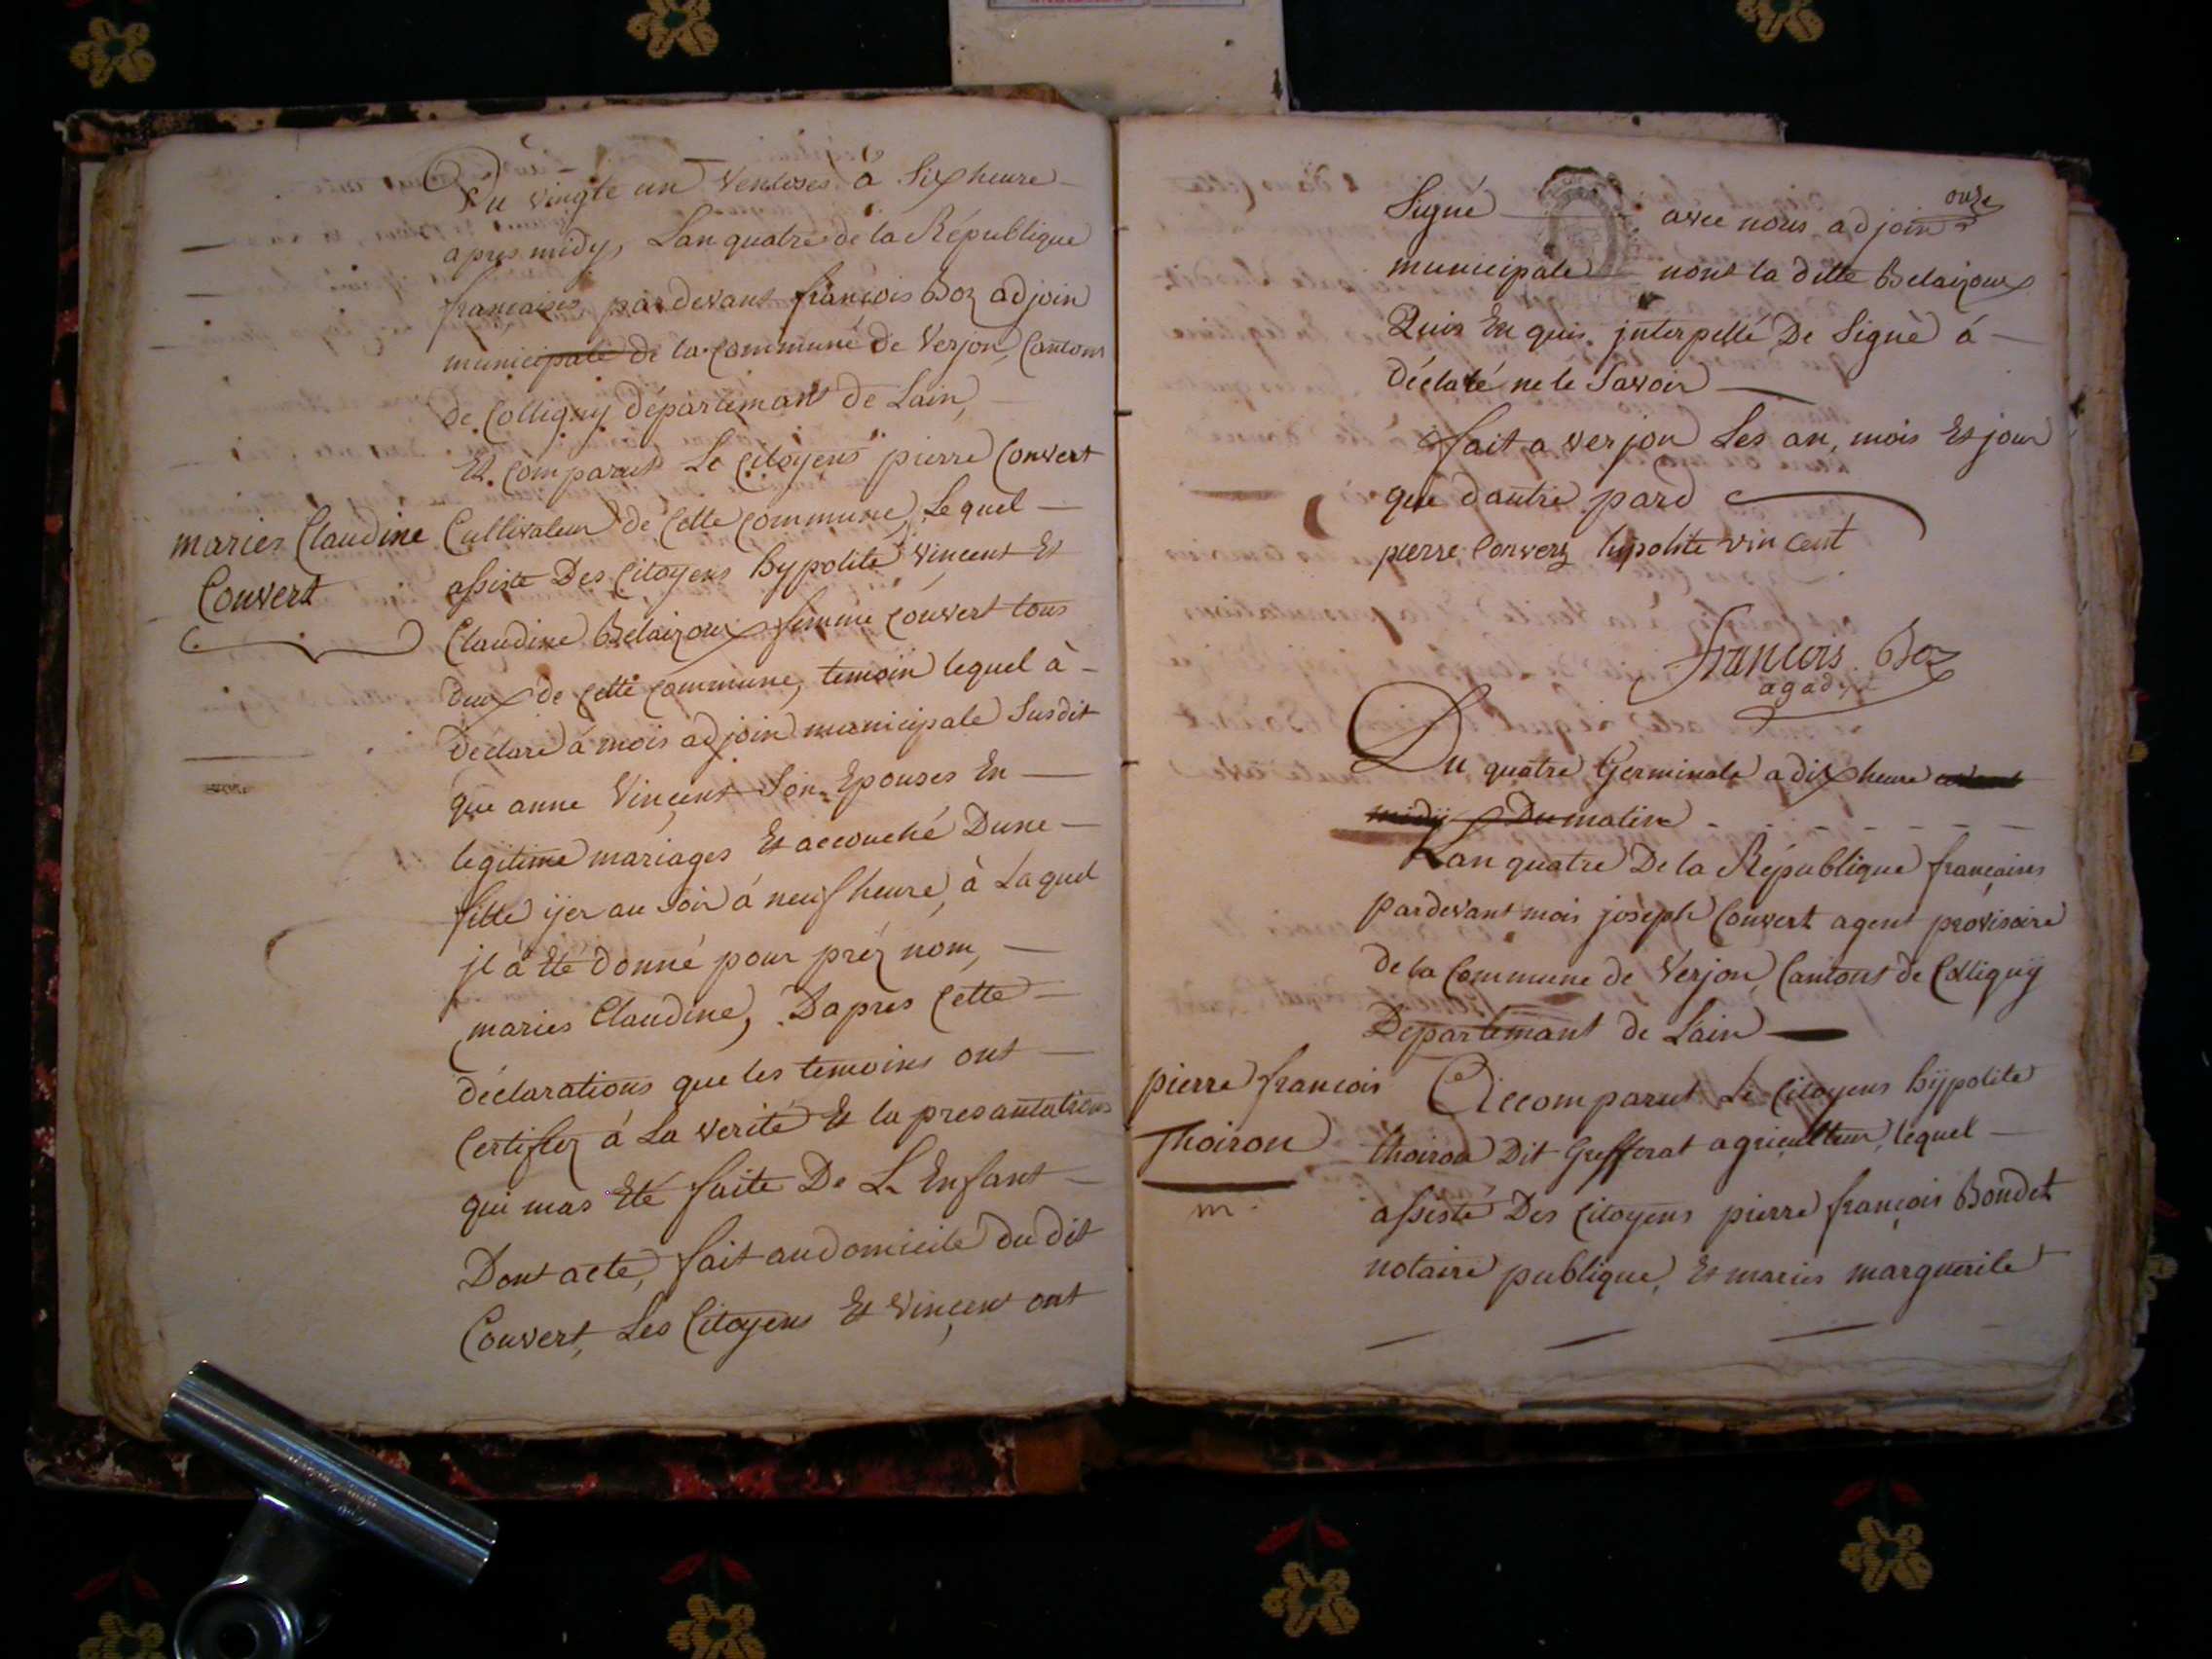 Du vingte un Ventoses à Six heure
apres midy, Lan quatre de la République
françaises, pardevant françois Boz adjoin
municipale de la commune de Verjon, Cantons
de Colligny départemant de Lain,
Et comparut Le Citoyens pierre Convert
maries Claudine
Convert
Cultivateur de Cette Commune, Le quel
assiste Des Citoyens hypolite Vincent Et
Claudine Belaizoux femme Convert tous
Deux de Cette Commune, temoin lequel à
Déclaré à mois adjoin municipale Susdit
que anne Vincent Son Epouses En
legitime mariages Et accouché Dune
fille ijer au Soir à neuf heure, à Laquel
jl à Eté donné pour préz nom,
maries Claudine, Dapres Cette
déclarations que les temoins ont
Certifiez à La verité Et la presantations
qui mas Eté faite De L Enfant
Dont acte, fait au domicile Du dit
Convert, Les Citoyens Et Vincent ont
onze
Signé avec nous adjoin
municipale nont la ditte Belaizoux
Quis En quis interpellé De Signé à
déclaré ne le Savoir
fait a verjon Les an, mois Et jour
que dautre pard
pierre Converz hipolite vin cent
francois Boz
agadjt
Du quatre Germinale a dix heure
midy Du matin
Lan quatre De la République françaises
pardevant mois joseph Convert agent provisoire
de la Commune de Verjon, Cantont de Colligny
Departemant de Lain
pierre francois
Thoiron
m.
Accomparut Le Citoyens hypolite
thoiron Dit Grefferat agriculteur, lequel
assisté Des Citoyens pierre françois Bondet
notaire publique, Et maries marguerite